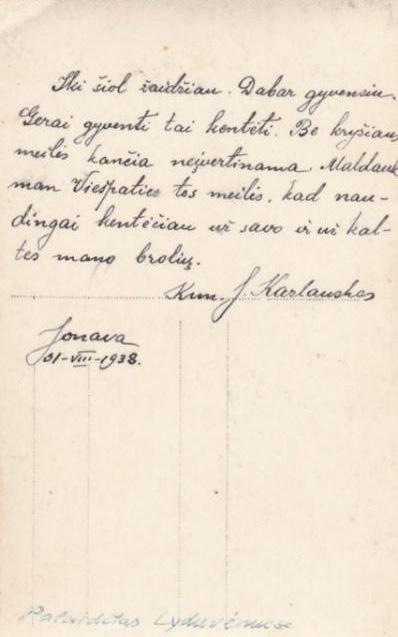 Iki šiol žaidžiau. Dabar gyvensiu.
Gerai gyventi tai kentėti. Be kryžiaus
meilės kančia neįvertinama. Maldauk
man Viešpaties tos meilės, kad nau-
dingai kentėčiau už savo ir už kal-
tes mano brolių.
Kun. J. Karlauskas
Jonava
01-VIII-1938.
Palaidotas Lyduvėnuose